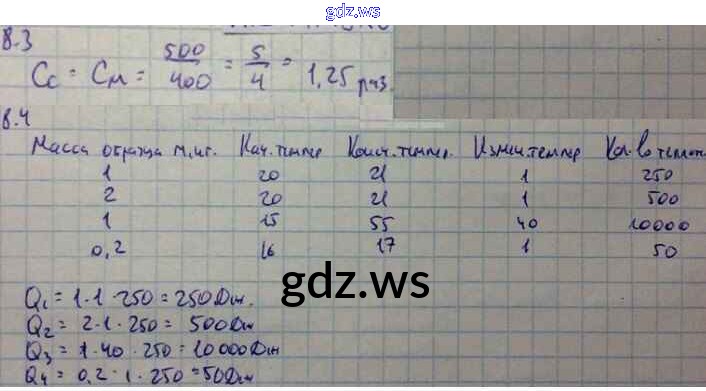 gdz.ws
8.3
Cc = Cм = 500/400 = 5/4 = 1,25 раз.
8.4
Масса образца m, кг. Нач. темпер Конеч. темпер. Измен. темпер Кол-во теплот.
1 20 21 1 250
2 20 21 1 500
1 15 55 40 10000
0,2 16 17 1 50
gdz.ws
Q1 = 1·1·250 = 250 Дж.
Q2 = 2·1·250 = 500 Дж
Q3 = 1·40·250 = 10000 Дж
Q4 = 0,2·1·250 = 50 Дж